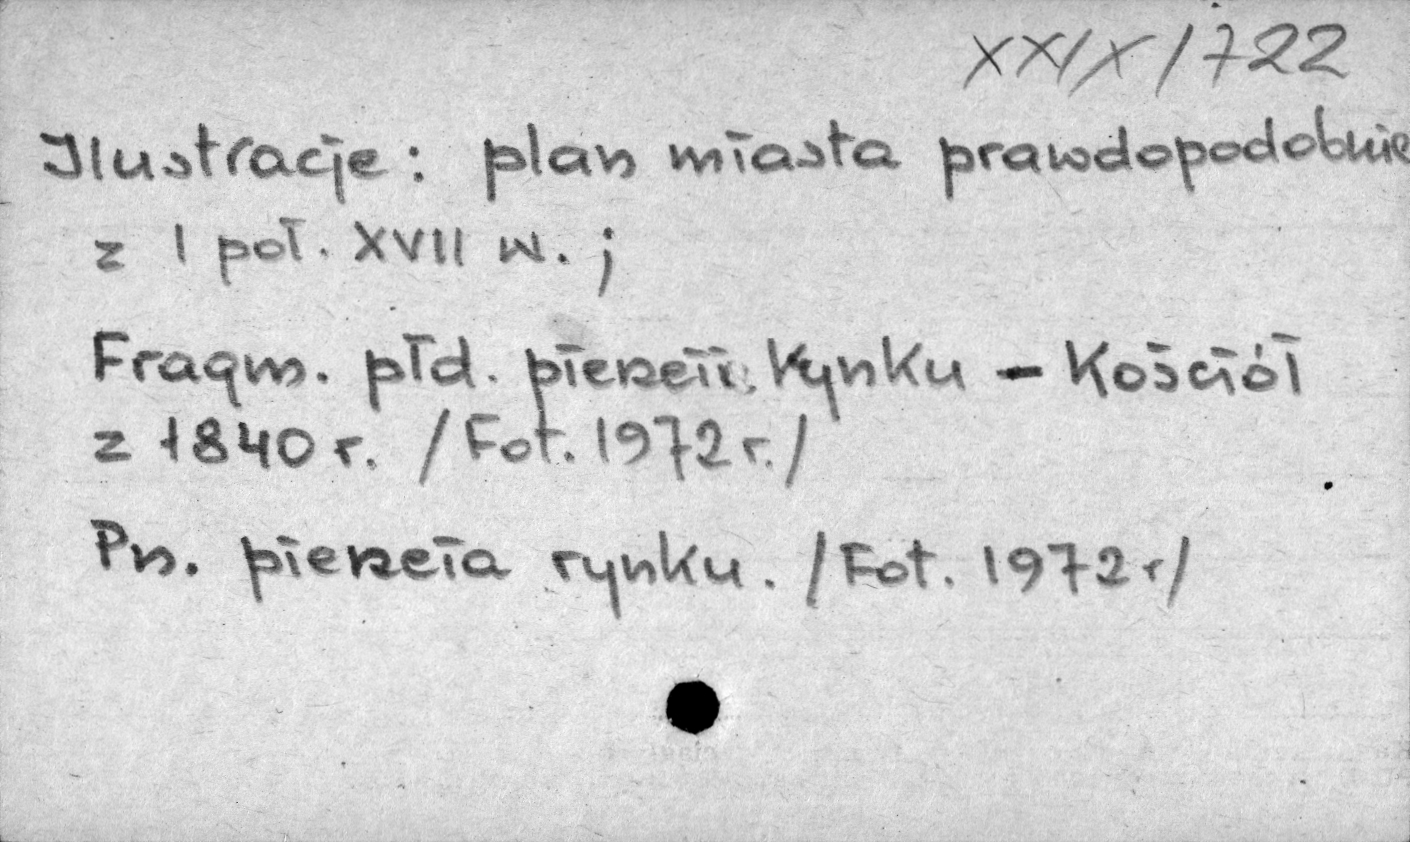 XXIX/722
Ilustracje: plan miasta prawdopodobnie
z I poł. XVII w.;
Fragm. płd. pierzeii Rynku - Kościół
z 1840 r. /Fot. 1972 r./
Pn. pierzeia rynku. /Fot. 1972 r/